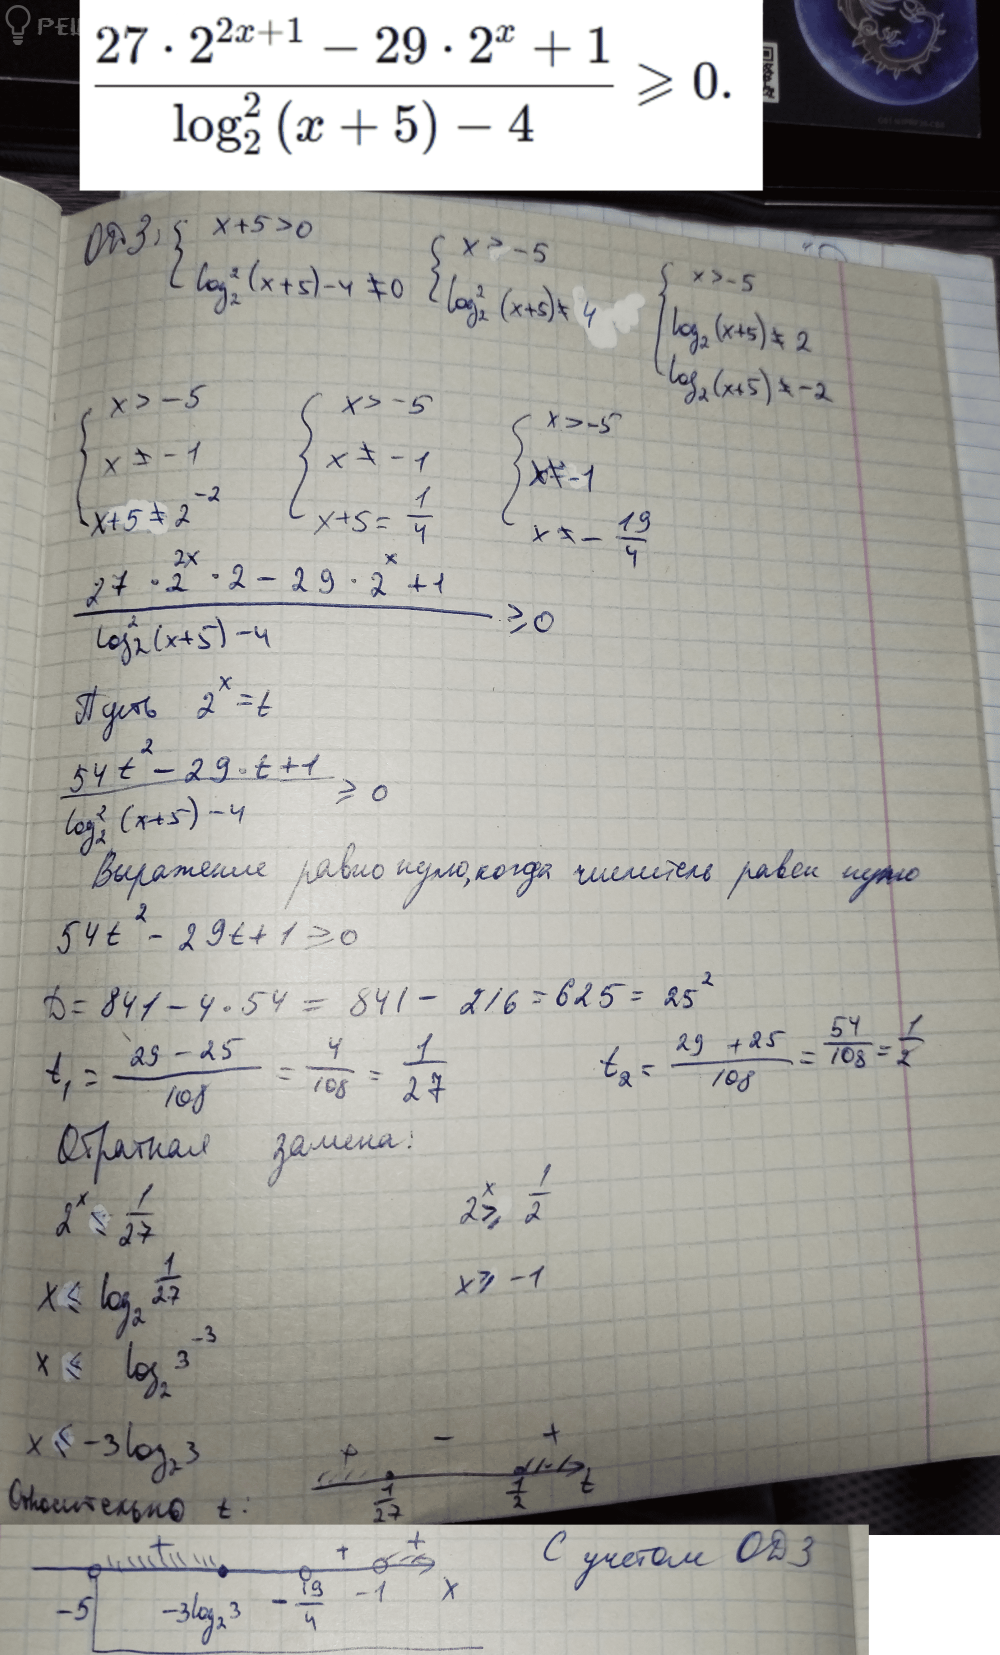 РЕШ
27 · 2^{2x+1} − 29 · 2^x + 1
⩾ 0.
log_2^2 (x + 5) − 4
ОДЗ: { x+5>0 { x > −5 { x > −5
log_2^2 (x+5) − 4 ≠ 0 log_2^2 (x+5) ≠ 4 log_2 (x+5) ≠ 2
log_2 (x+5) ≠ −2
{ x > −5 { x > −5 { x > −5
x ≠ −1 x ≠ −1 x ≠ −1
x+5 ≠ 2^{−2} x+5 = 1/4 x ≠ − 19/4
27 · 2^{2x} · 2 − 29 · 2^x + 1
⩾ 0
log_2^2 (x+5) − 4
Пусть 2^x = t
54t^2 − 29·t + 1
⩾ 0
log_2^2 (x+5) − 4
Выражение равно нулю, когда числитель равен нулю
54t^2 − 29t + 1 ⩾ 0
D = 841 − 4·54 = 841 − 216 = 625 = 25^2
t_1 = (29 − 25)/108 = 4/108 = 1/27 t_2 = (29 + 25)/108 = 54/108 = 1/2
Обратная замена:
2^x ⩽ 1/27 2^x ⩾ 1/2
x ⩽ log_2 1/27 x ⩾ −1
x ⩽ log_2 3^{−3}
x ⩽ −3log_2 3
+ − +
Относительно t: 1/27 1/2 t
+ + + С учетом ОДЗ
−5 −3log_2 3 − 19/4 −1 x